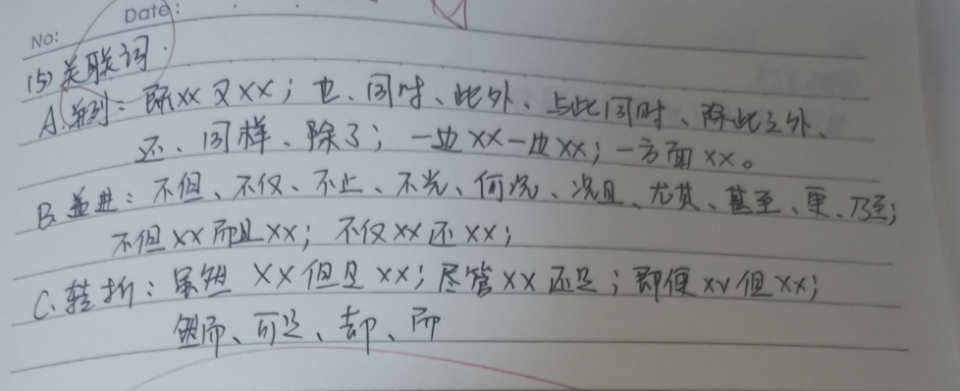 Date:
No:
(5) 关联词.
A.并列：既xx又xx；也、同时、此外、与此同时、除此之外、
还、同样、除了；一边xx一边xx；一方面xx。
B.递进：不但、不仅、不止、不光、何况、况且、尤其、甚至、更、乃至；
不但xx而且xx；不仅xx还xx；
C.转折：虽然xx但是xx；尽管xx还是；即便xx但xx；
然而、可是、却、而